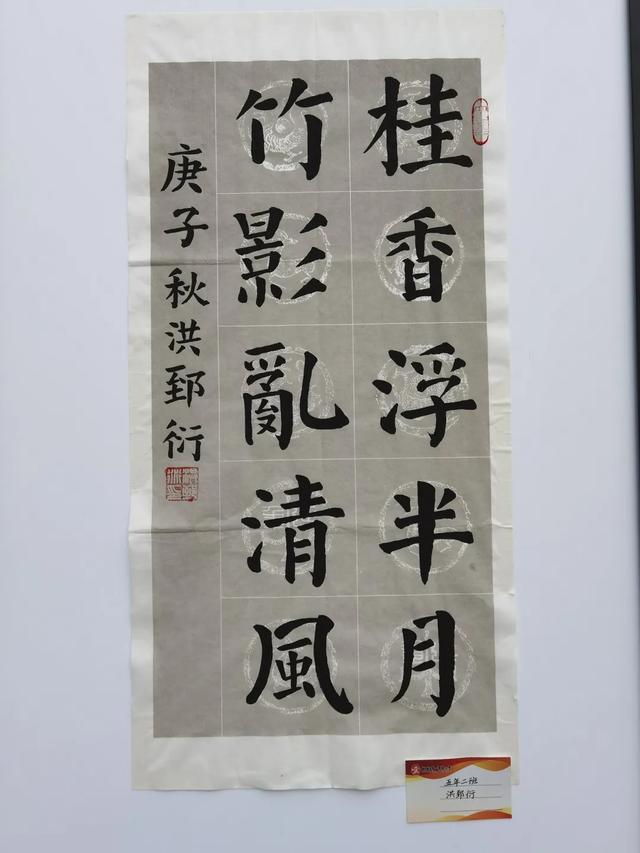 桂香浮半月
竹影亂清風
庚子秋洪郅衍
五年二班
洪郅衍